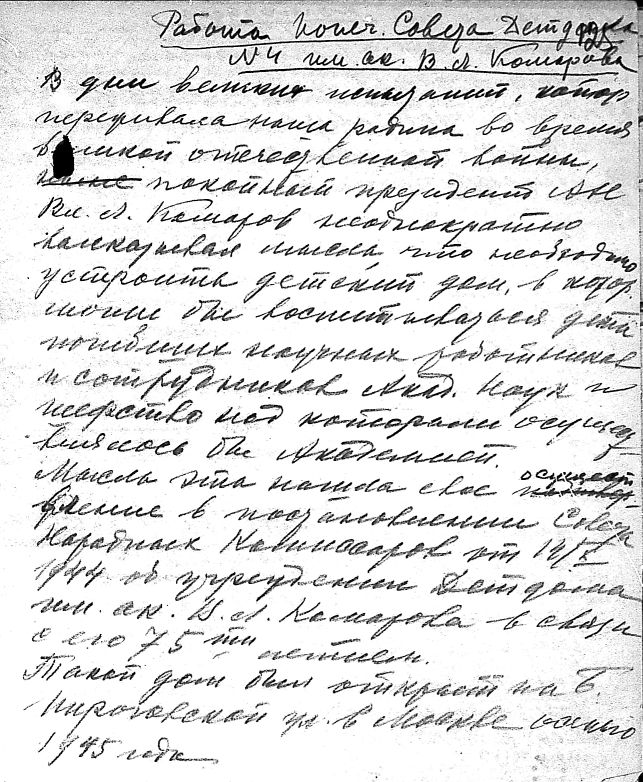 Работа Попеч. Совета Детдома
№4 им. ак. В. Л. Комарова
В дни великих испытаний, котор
переживала наша родина во время
Великой отечественной войны,
покойный президент АН
Вл. Л. Комаров неоднократно
высказывал мысль, что необходимо
устроить детский дом, в котор
могли бы воспитываться дети
погибших научных работников
и сотрудников Акад. Наук и
шефство над которыми осущест
влялось бы Академией.
Мысль эта нашла свое осущест
вление в постановлении Совета
Народных Комиссаров от 14/X
1944 об учреждении Детдома
им. ак. В. Л. Комарова в связи
с его 75ти летием.
Такой дом был открыт на Б.
Пироговской ул. в Москве осенью
1945 года